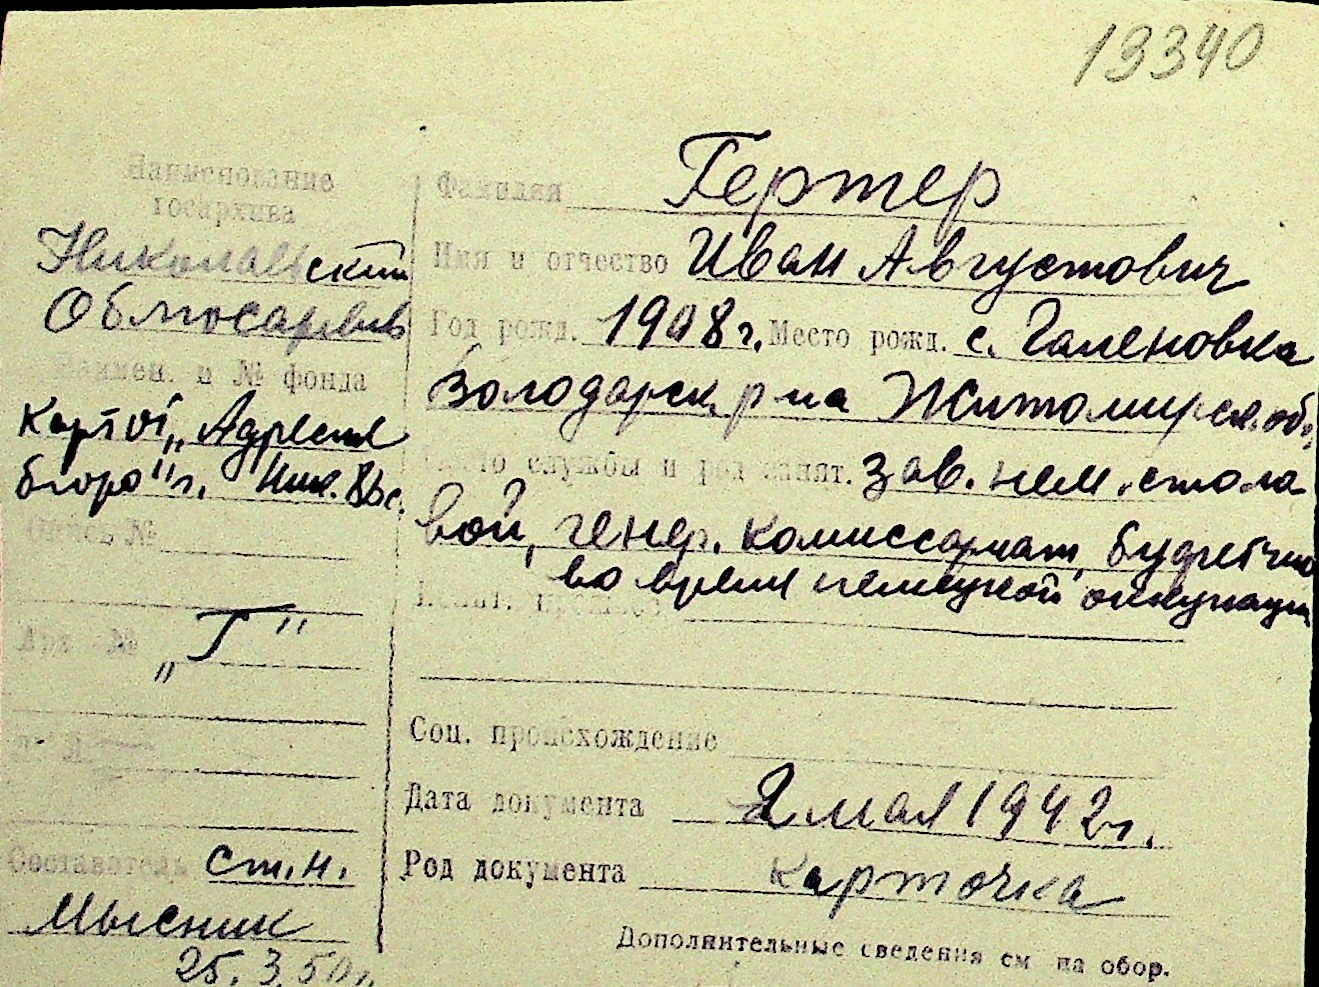 13340
Наименование
госархива
Николаевский
Облгосархив
Наимен. и № фонда
"Адресное
бюро" г. Ник.
Опись №
Арх №
"Г"
Составитель ст. н.
Мысник
25.3.50 г.
Фамилия Гертер
Имя и отчество Иван Августович
Год рожд. 1908 г. Место рожд. с. Галеновка
Володарск. р-на Житомирск. об.
Место службы и род занят. зав. нем. столо
вой, генер. комиссариат,
во время немецкой оккупации
Соц. происхождение
Дата документа 2 мая 1942 г.
Род документа карточка
Дополнительные сведения см на обор.